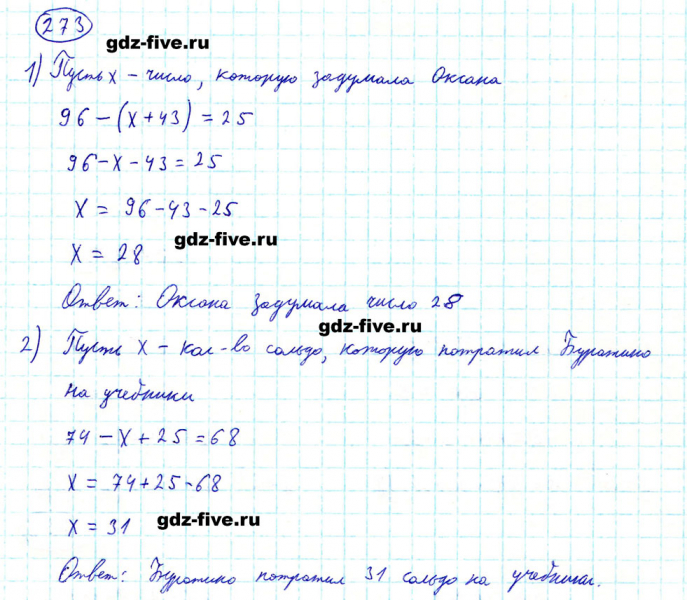 273
gdz-five.ru
1) Пусть x – число, которую задумала Оксана
96 – (x + 43) = 25
96 – x – 43 = 25
x = 96 – 43 – 25
gdz-five.ru
x = 28
Ответ: Оксана задумала число 28
gdz-five.ru
2) Пусть x – кол-во сольдо, которую потратил Буратино
на учебники
74 – x + 25 = 68
x = 74 + 25 – 68
x = 31 gdz-five.ru
Ответ: Буратино потратил 31 сольдо на учебники.